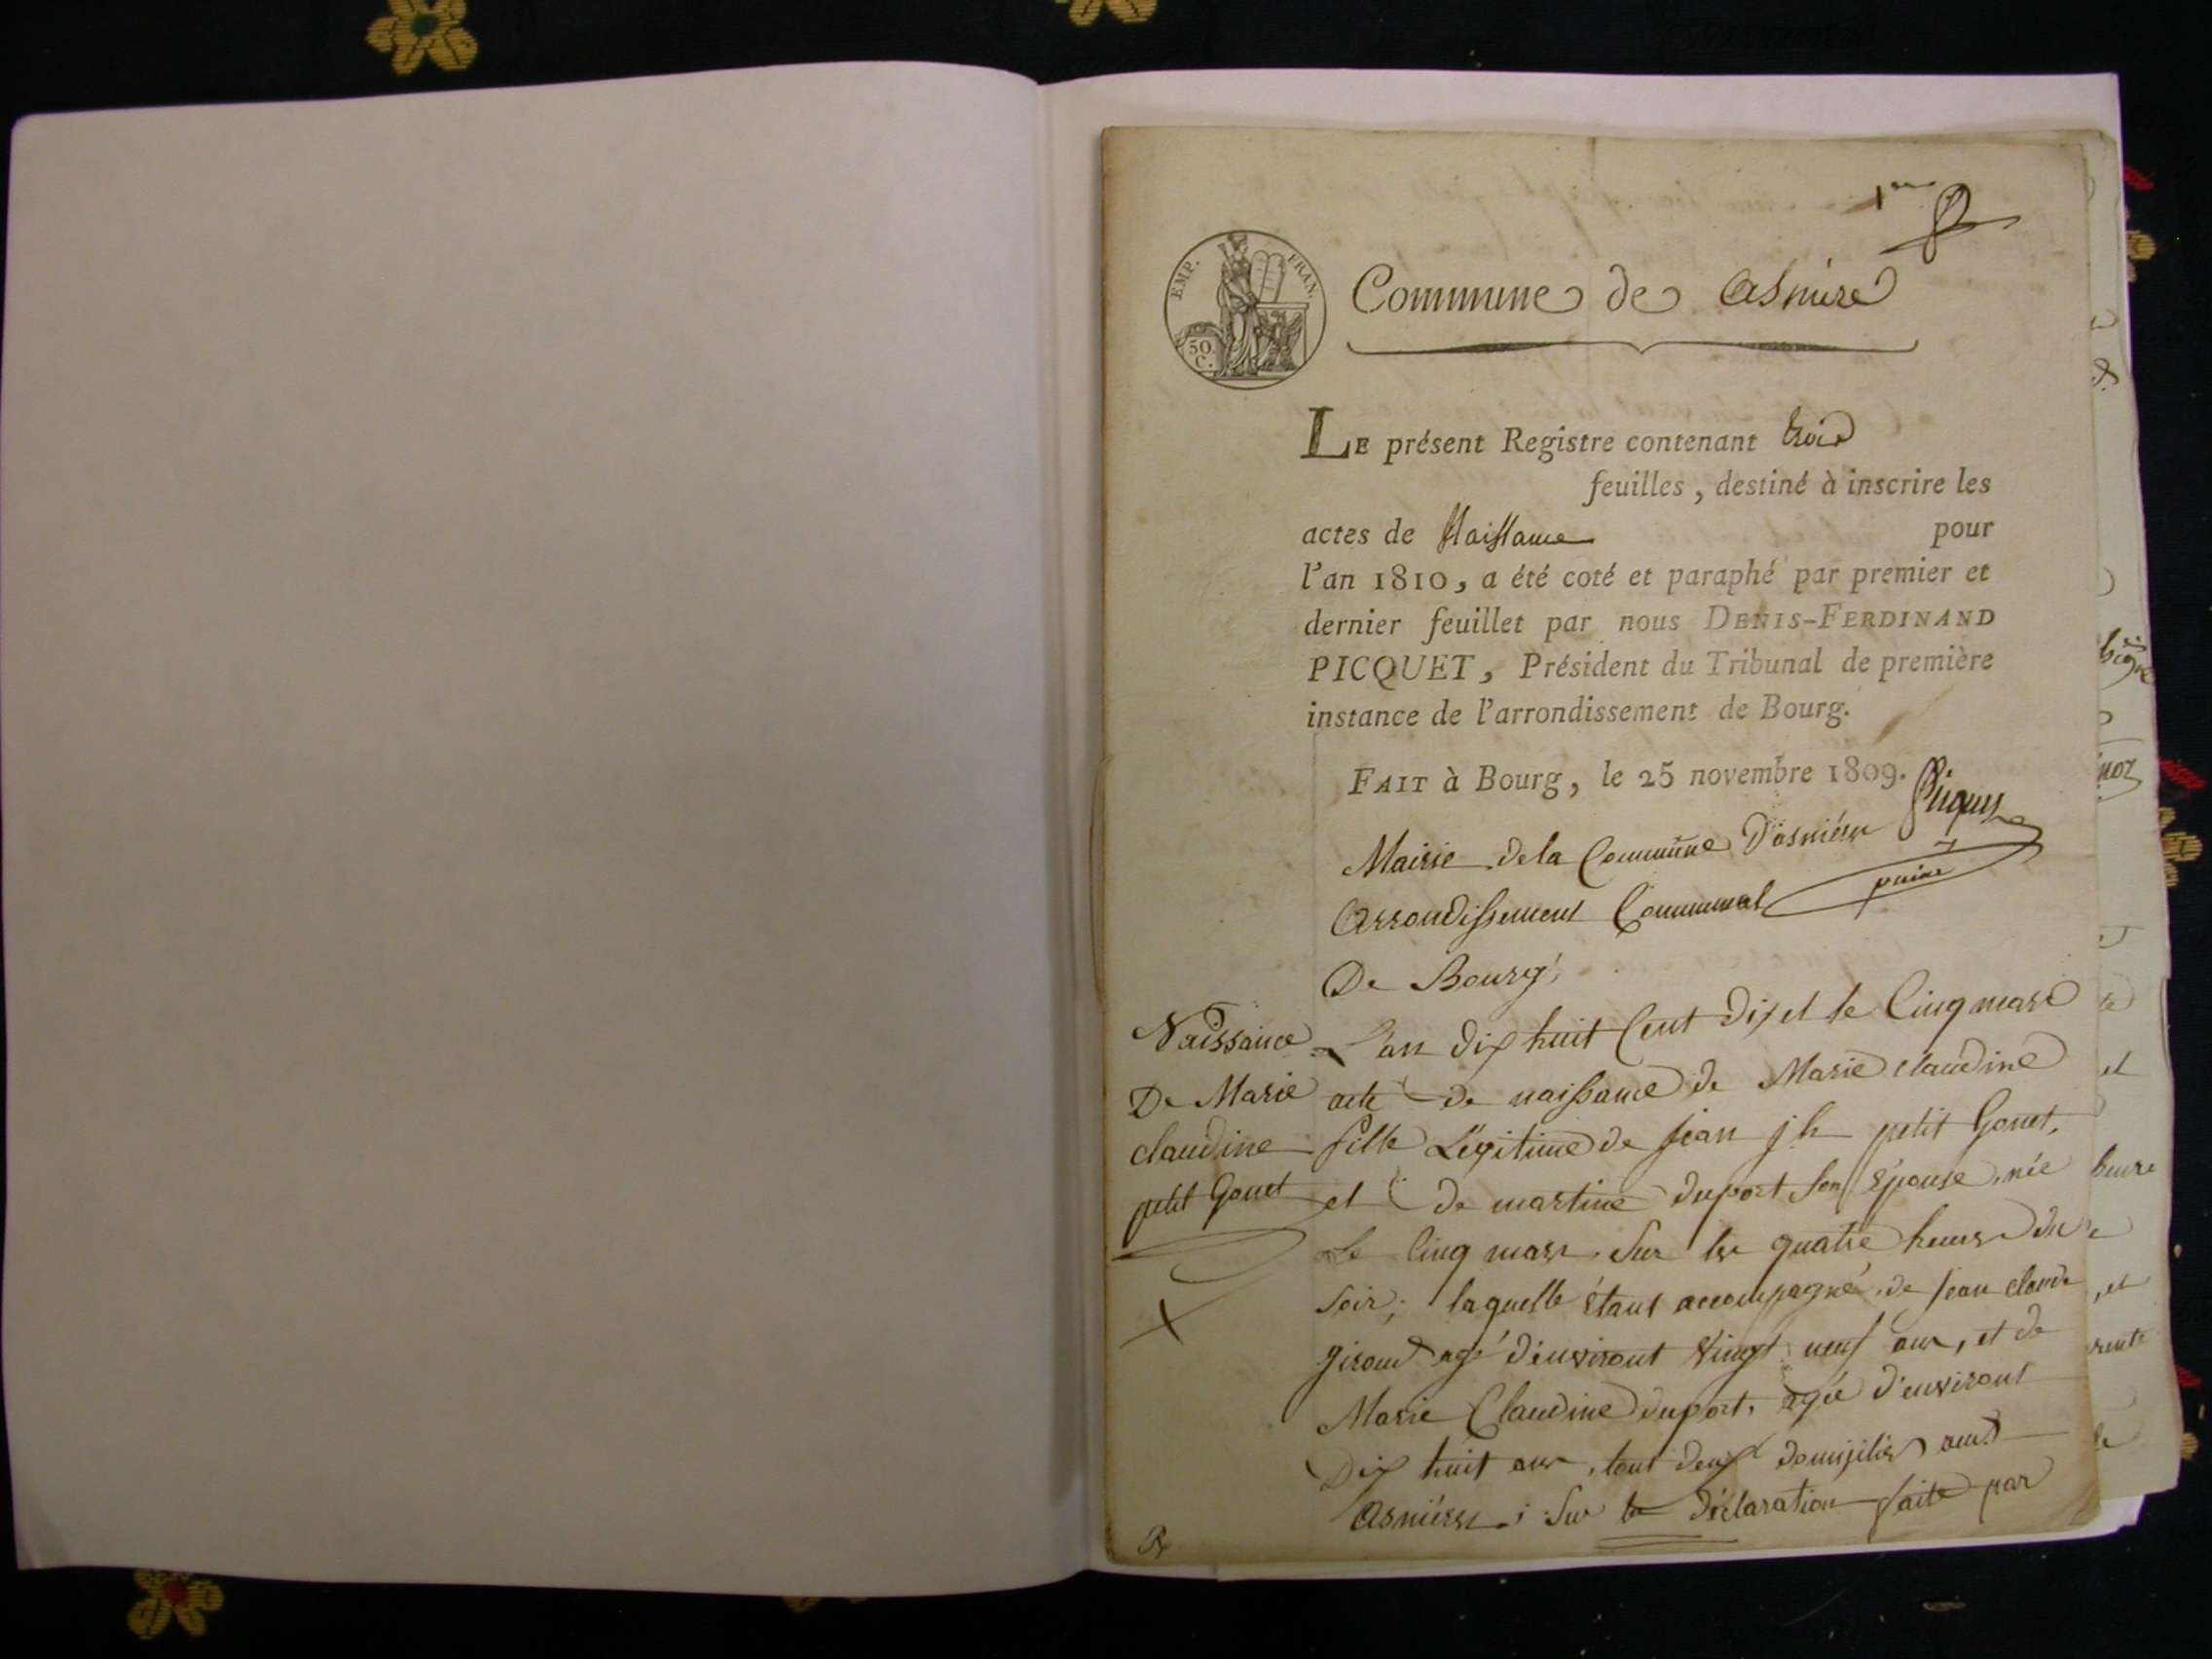 1er
EMP. FRAN.
50 C.
Commune de Asniere
LE présent Registre contenant trois
feuilles, destiné à inscrire les
actes de Naissance pour
l'an 1810, a été coté et paraphé par premier et
dernier feuillet par nous DENIS-FERDINAND
PICQUET, Président du Tribunal de première
instance de l'arrondissement de Bourg.
FAIT à Bourg, le 25 novembre 1809.
Picquet
Mairie dela Commune D'asniéres
Arrondissement Communal
De Bourg
Naissance
De Marie
claudine
petit Gonet
L'an dix huit Cent Dix et le Cinq mars
acte de naissance de Marie claudine
fille Légitime de jean j h petit Gonet,
et de martine duport son épouse, née
le Cinq mars, sur les quatre heures du
soir; laquelle étant accompagné de jean claude
giroud agé d'environt vingt neuf ans, et de
Marie Claudine duport, agée d'environt
Dix huit ans, tout deux domijiliés aud
Asniéres; Sur la déclaration faite par